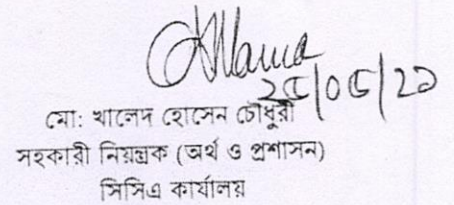 ২৫/০৫/২১
মো: খালেদ হোসেন চৌধুরী
সহকারী নিয়ন্ত্রক (অর্থ ও প্রশাসন)
সিসিএ কার্যালয়